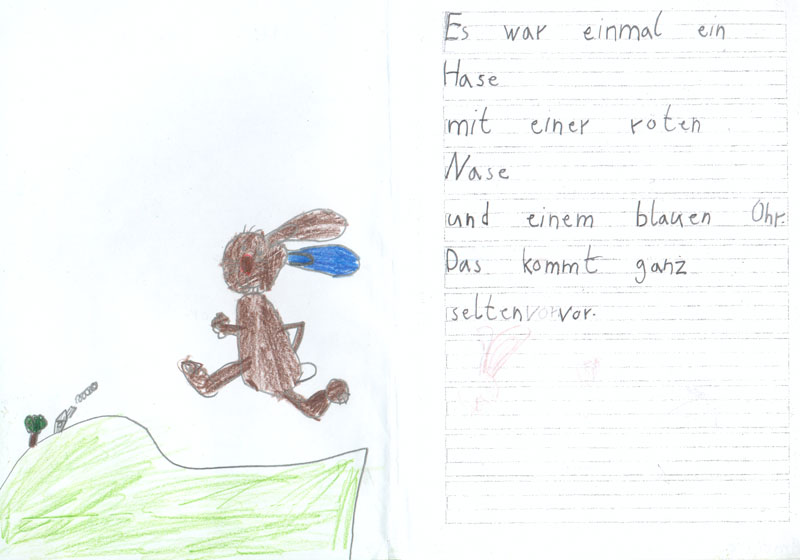 Es war einmal ein
Hase
mit einer roten
Nase
und einem blauen Ohr.
Das kommt ganz
selten vor.